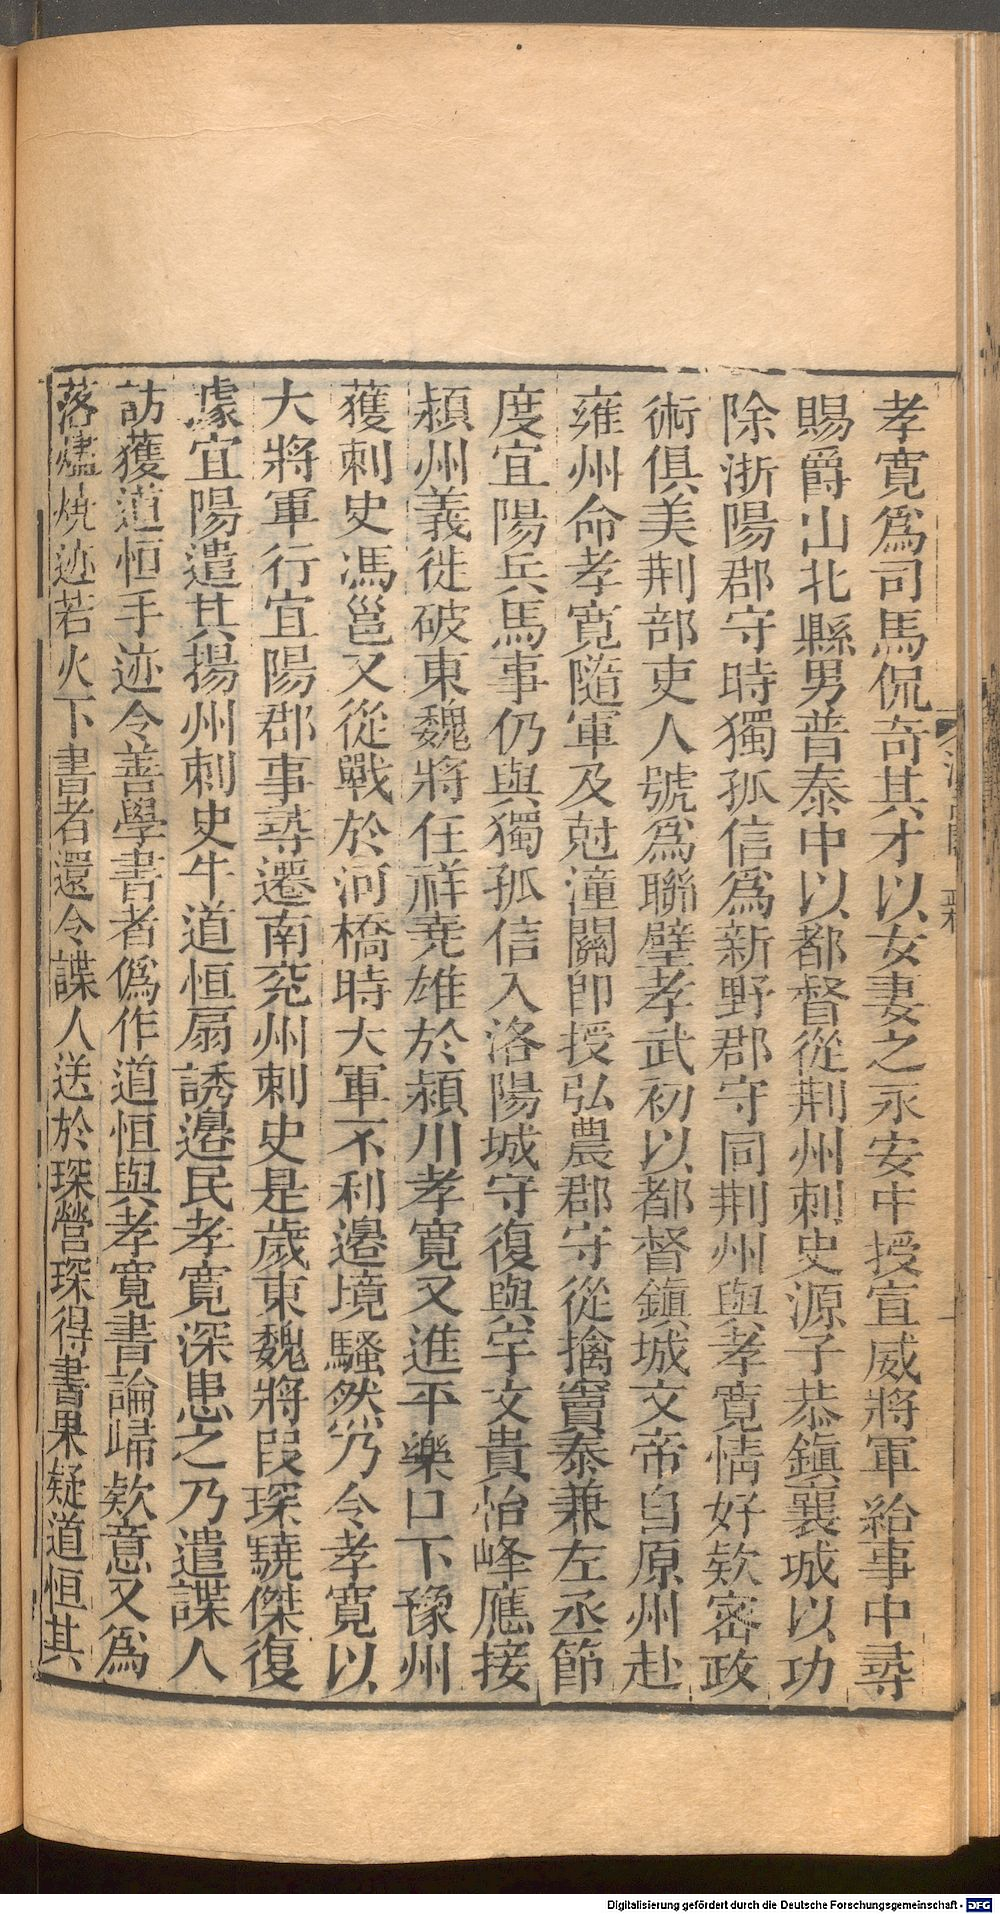 孝寬爲司馬侃奇其才以女妻之永安中授宣威將軍給事中尋
賜爵山北縣男普泰中以都督從荆州刺史源子恭鎮襄城以功
除浙陽郡守時獨孤信爲新野郡守同荆州與孝寬情好欵密政
術俱美荆部吏人號爲聯璧孝武初以都督鎮城文帝自原州赴
雍州命孝寬隨軍及尅潼關即授弘農郡守從擒竇泰兼左丞節
度宜陽兵馬事仍與獨孤信入洛陽城守復與宇文貴怡峰應接
潁州義徙破東魏將任祥堯雄於潁川孝寬又進平樂口下豫州
獲刺史馮邕又從戰於河橋時大軍不利邊境騷然乃令孝寬以
大將軍行宜陽郡事尋遷南兖州刺史是歲東魏將段琛驍傑復
據宜陽遣其揚州刺史牛道恒扇誘邊民孝寬深患之乃遣諜人
訪獲道恒手迹令善學書者僞作道恒與孝寬書論歸欵意又爲
落燼燒迹若火下書者還令諜人送於琛營琛得書果疑道恒其
Digitalisierung gefördert durch die Deutsche Forschungsgemeinschaft - DFG